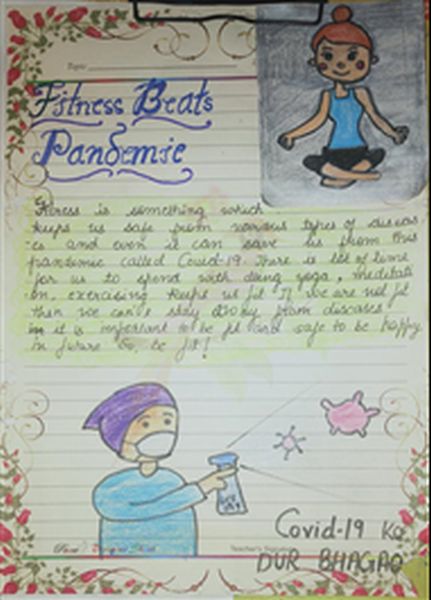 Topic
Fitness Beats
Pandemic
Fitness is something which
keeps us safe from various types of diseas
-es and even it can save us from this
pandemic called Covid-19. There is lot of time
for us to spend with doing yoga, meditati
on, exercising keeps us fit If we are not fit
then we can't stay away from diseases
it is important to be fit and safe to be happy
in future So, be fit!
Teacher's
Covid-19 Ko
DUR BHAGAO